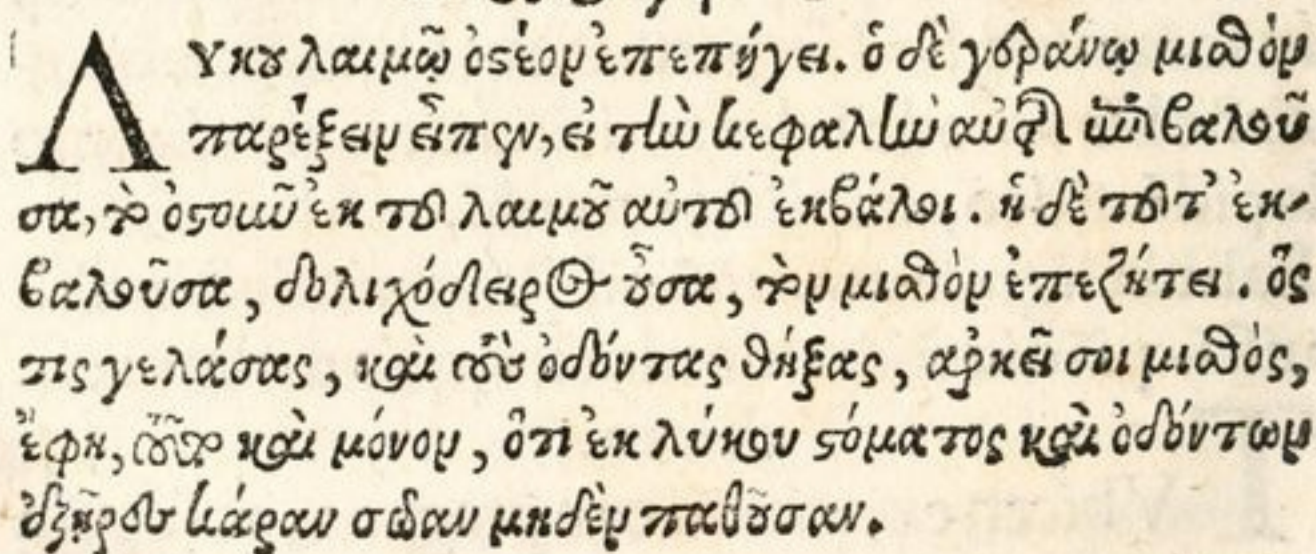 Λύκου λαιμῷ ὀστέον ἐπεπήγει. ὁ δὲ γεράνῳ μισθὸν
παρέξειν εἶπεν, εἰ τὴν κεφαλὴν αὐτῆς ἐπιβαλοῦ
σα, τὸ ὀστοῦν ἐκ τοῦ λαιμοῦ αὐτοῦ ἐκβάλοι. ἡ δὲ τοῦτ' ἐκ-
βαλοῦσα, δολιχόδειρος οὖσα, τὸν μισθὸν ἐπεζήτει. ὅς
τις γελάσας, καὶ τοὺς ὀδόντας θήξας, ἀρκεῖ σοι μισθὸς,
ἔφη, τοῦτο καὶ μόνον, ὅτι ἐκ λύκου στόματος καὶ ὀδόντων
ἐξῆρες κάραν σῶαν μηδὲν παθοῦσαν.